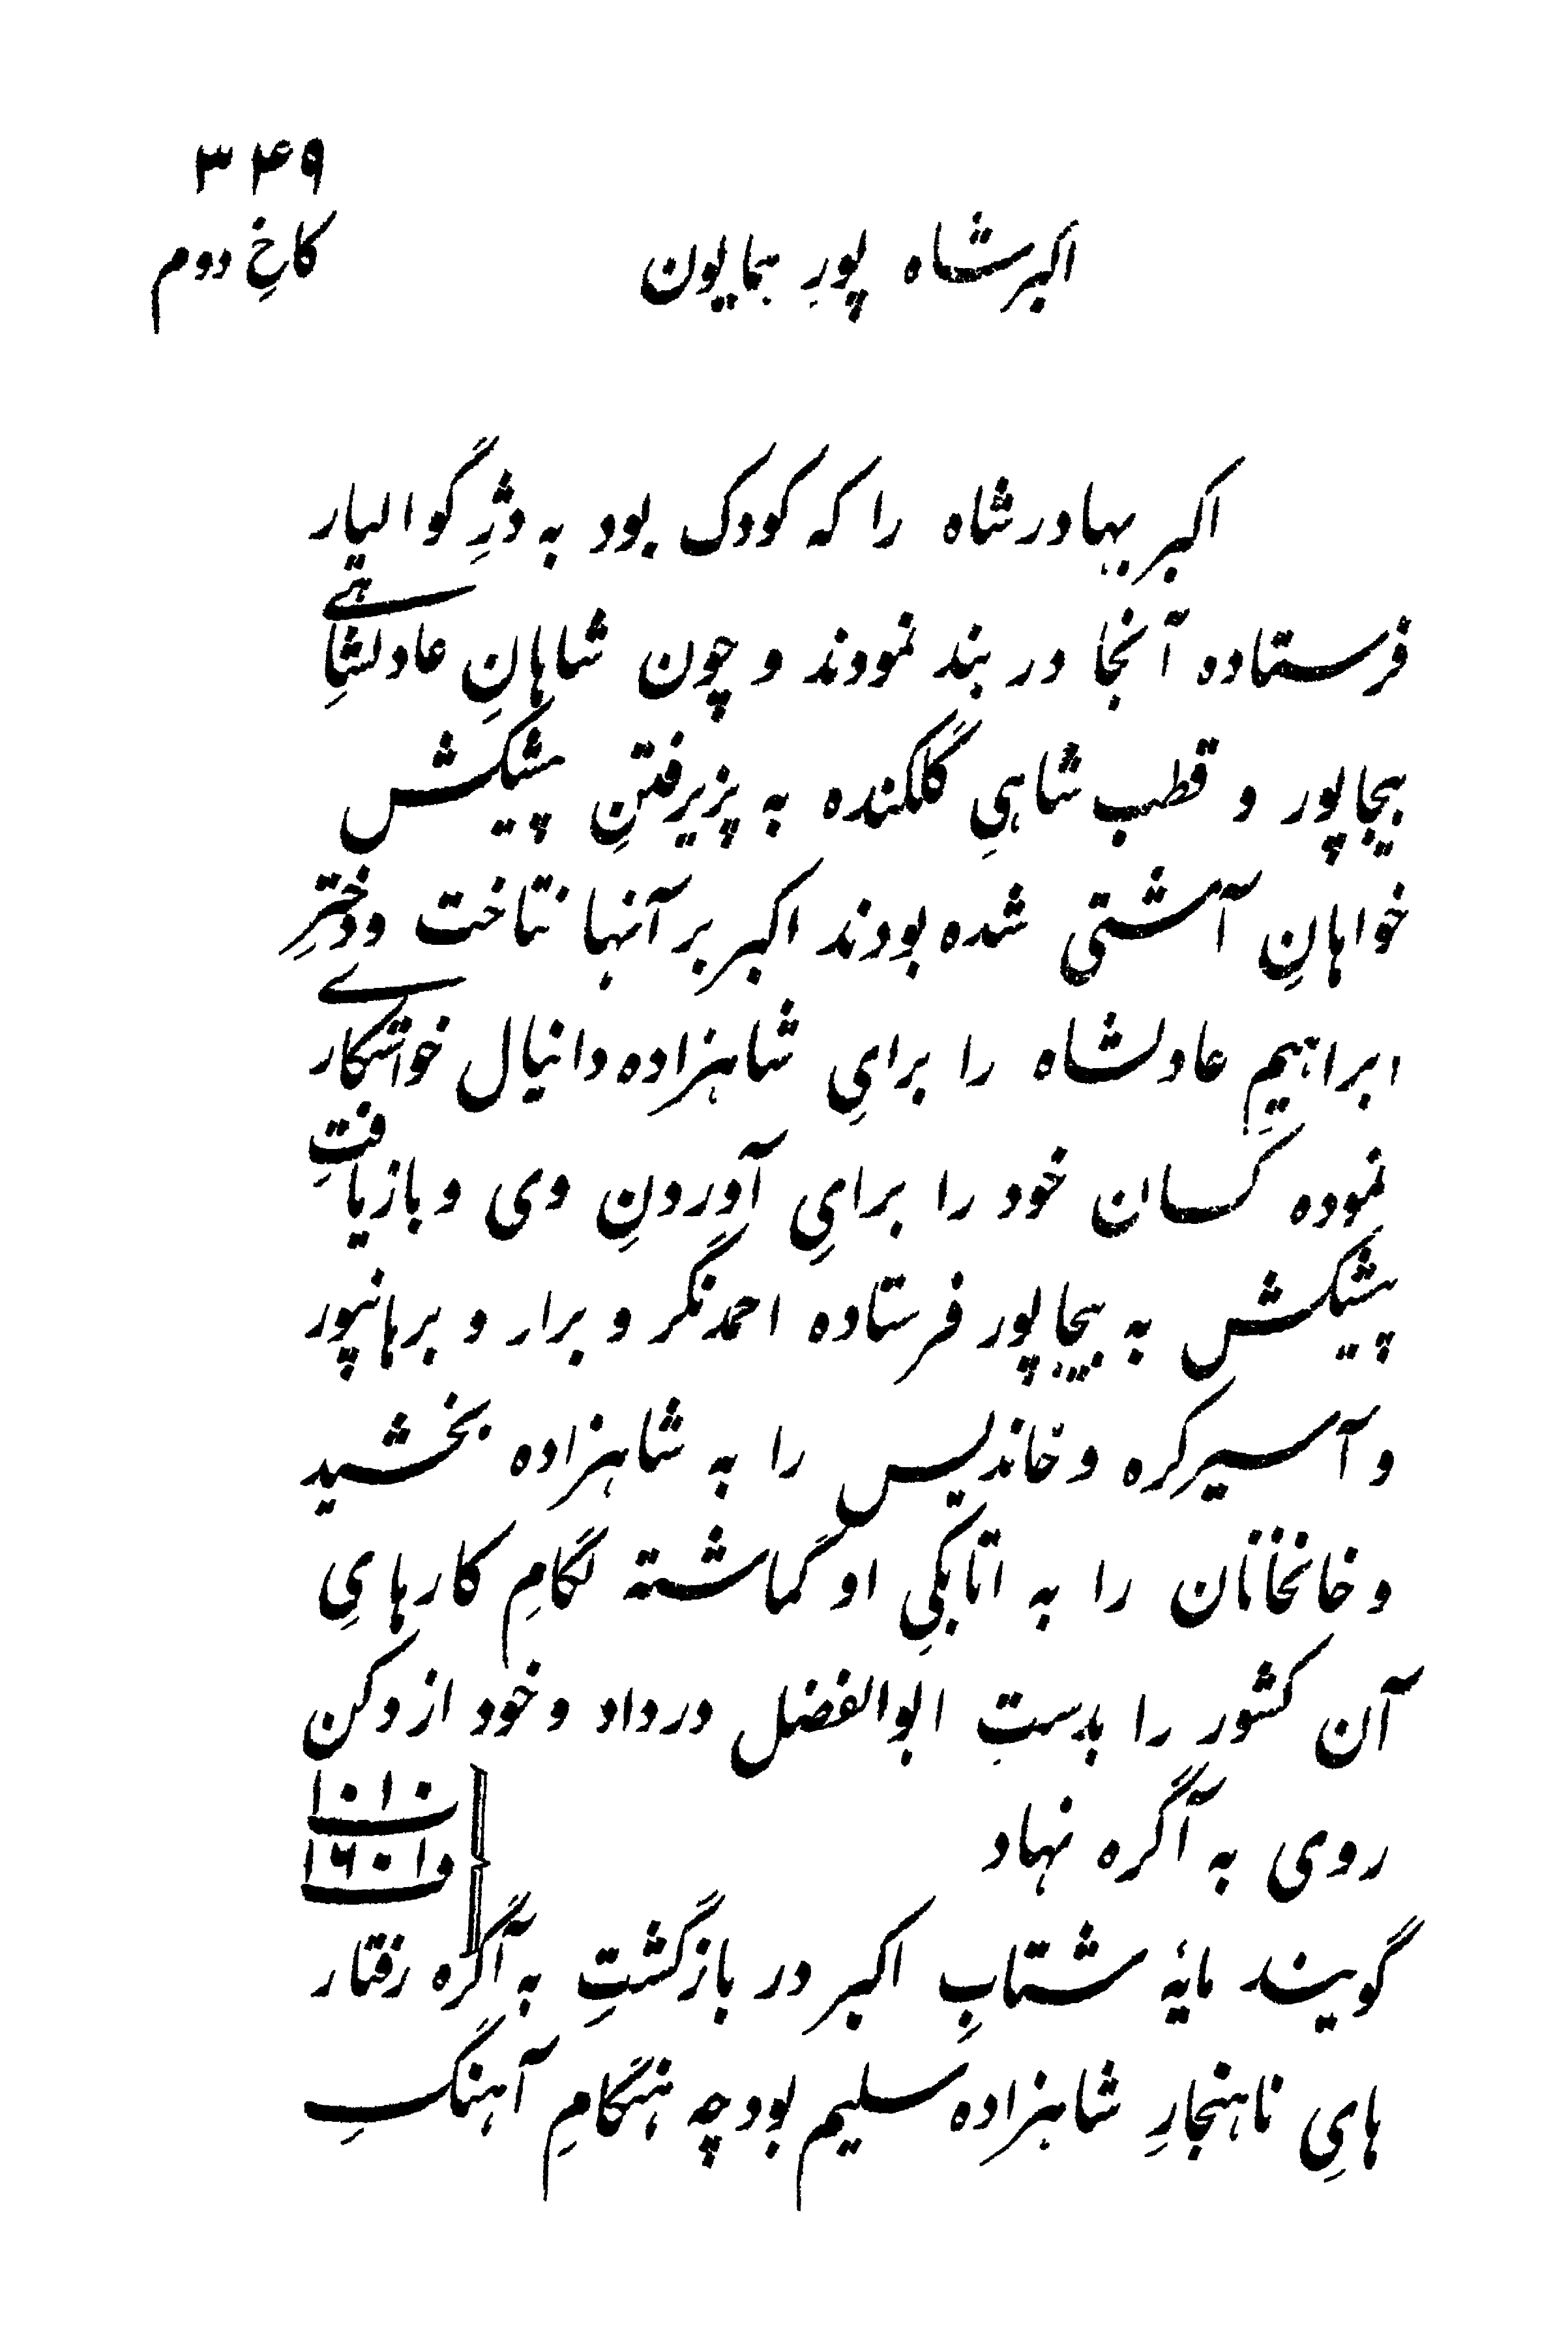 ۳۴۹
اکبرشاه پورِ همایون
کاخِ دوم
اکبر بهادرشاه را که کودک بود به دژِ گوالیار
فرستاده آنجا در بند نمودند و چون شاهانِ عادلشاهیِ
بیجاپور و قطب شاهیِ گلکنده به پزیرفتنِ پیشکش
خواهانِ آشتی شده بودند اکبر بر آنها نتاخت و دخترِ
ابراهیمِ عادلشاه را برایِ شاهزاده دانیال خواستگاری
نموده کسان خود را برایِ آوردنِ وی و بازیافتِ
پیشکش به بیجاپور فرستاده احمدنگر و برار و برهانپور
و آسیرکره و خاندیس را به شاهزاده بخشید
و خانخانان را به اتابکیِ او گماشته لگامِ کارهایِ
آن کشور را بدستِ ابوالفضل درداد و خود از دکن
روی به آگره نهاد
۱۰۱۰
و ۱۶۰۱
گویند مایهٔ شتابِ اکبر در بازگشتِ به آگره رفتار
هایِ ناهنجارِ شاهزاده سلیم بود چه هنگامِ آهنگِ